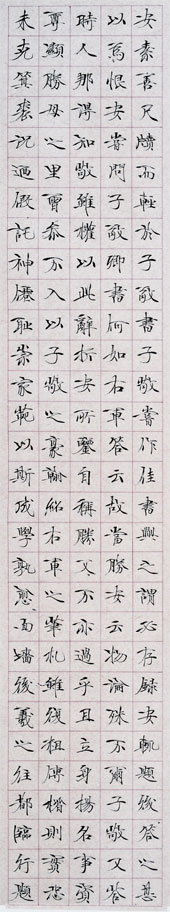 安素善尺牘而輕於子敬書子敬嘗作佳書與之謂必存錄安輒題後答之甚
以為恨安嘗問子敬卿書何如右軍答云故當勝安云物論殊不爾子敬又答
時人那得知敬雖權以此辭折安所鑒自稱勝父不亦過乎且立身揚名事資
尊顯勝母之里曾參不入以子敬之豪翰紹右軍之筆札雖復粗傳楷則實恐
未克箕裘況迺假託神僊恥崇家範以斯成學孰愈面墻後羲之往都臨行題